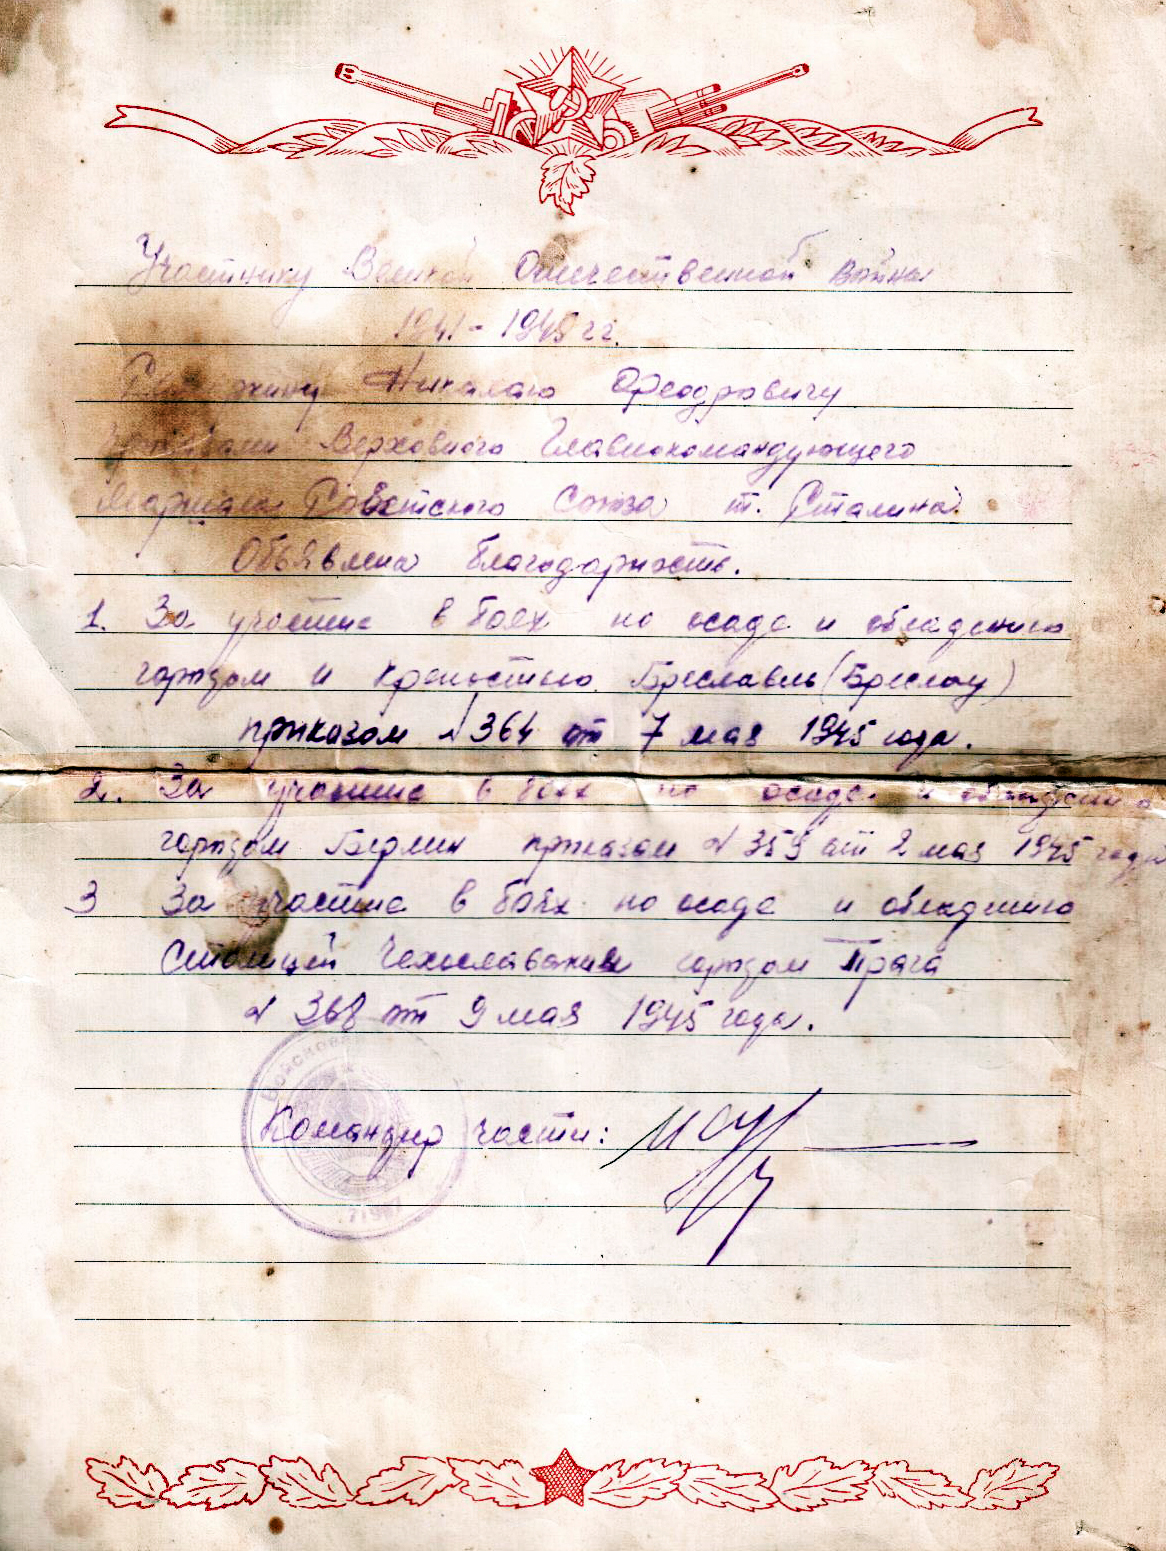 Участнику Великой Отечественной войны
1941-1945 гг.
Николаю Феодровичу
Верховного Главнокомандующего
Маршала Советского Союза т. Сталина.
Объявлена благодарность.
1. За участие в боях по осаде и обладению
городом и крепостью Бреславль (Бреслау)
приказом № 364 от 7 мая 1945 года.
2. За участие в боях по осаде и обладению
городом Берлин приказом № 359 от 2 мая 1945 года
3 За участие в боях по осаде и обладению
Столицей Чехославакии городом Прага
№ 368 от 9 мая 1945 года.
Войсковая
Командир части: